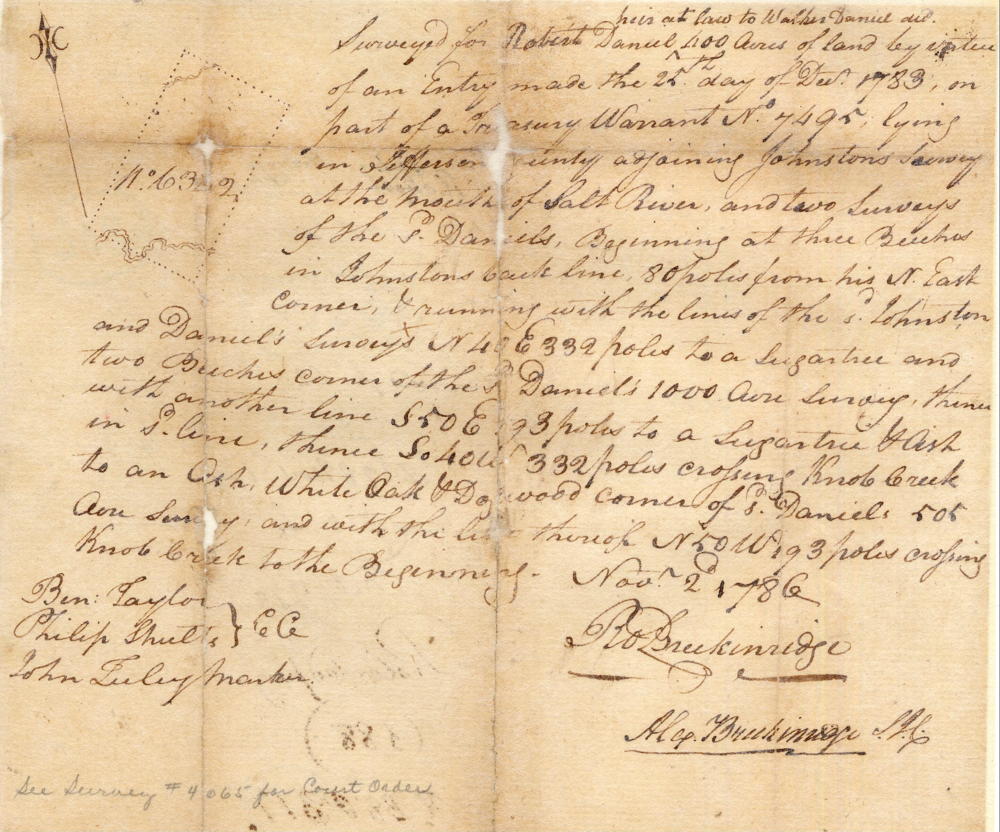 heir at law to Walker Daniel decd.
Surveyed for Robert Daniel 400 Acres of land by virtue
of an Entry made the 25th day of Decr. 1783, on
part of a Treasury Warrant No. 7495, lying
in Jefferson County adjoining Johnstons Survey
at the Mouth of Salt River, and two Surveys
of the Sd. Daniels, Beginning at three Beeches
in Johnstons back line, 80 poles from his N. East
corner, & running with the lines of the sd. Johnston
and Daniel's Surveys N 40 E 332 poles to a Sugartree and
two Beeches corner of the Sd Daniel's 1000 Acre Survey, thence
with another line S 50 E 193 poles to a Sugartree & Ash
in Sd. line, thence So 40 W 332 poles crossing Knob Creek
to an Ash, White Oak & Dogwood corner of Sd. Daniels 505
Acre Survey, and with the line thereof N 50 W 193 poles crossing
Knob Creek to the Beginning.
Novr. 2d 1786
No 6342
Ben: Taylor
Philip Shutts } C C
John Tuley Marker
RO Breckinridge
Alex. Breckinridge S.J.C.
See Survey # 4065 for Court Order